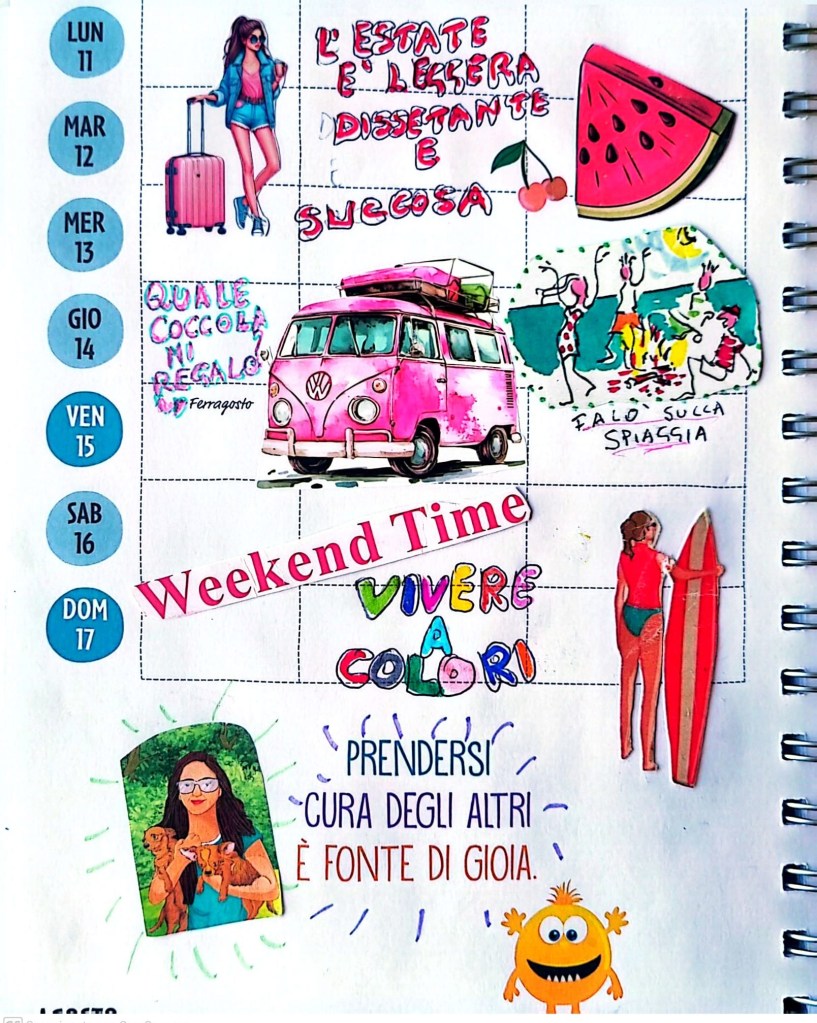 LUN
11
MAR
12
MER
13
GIO
14
VEN
15
SAB
16
DOM
17
L'ESTATE
E' LEGGERA
DISSETANTE
E
SUCCOSA
QUALE
COCCOLA
MI
REGALO?
Ferragosto
VW
FALO' SULLA
SPIAGGIA
Weekend Time
VIVERE
A
COLORI
PRENDERSI
CURA DEGLI ALTRI
È FONTE DI GIOIA.
AGOSTO